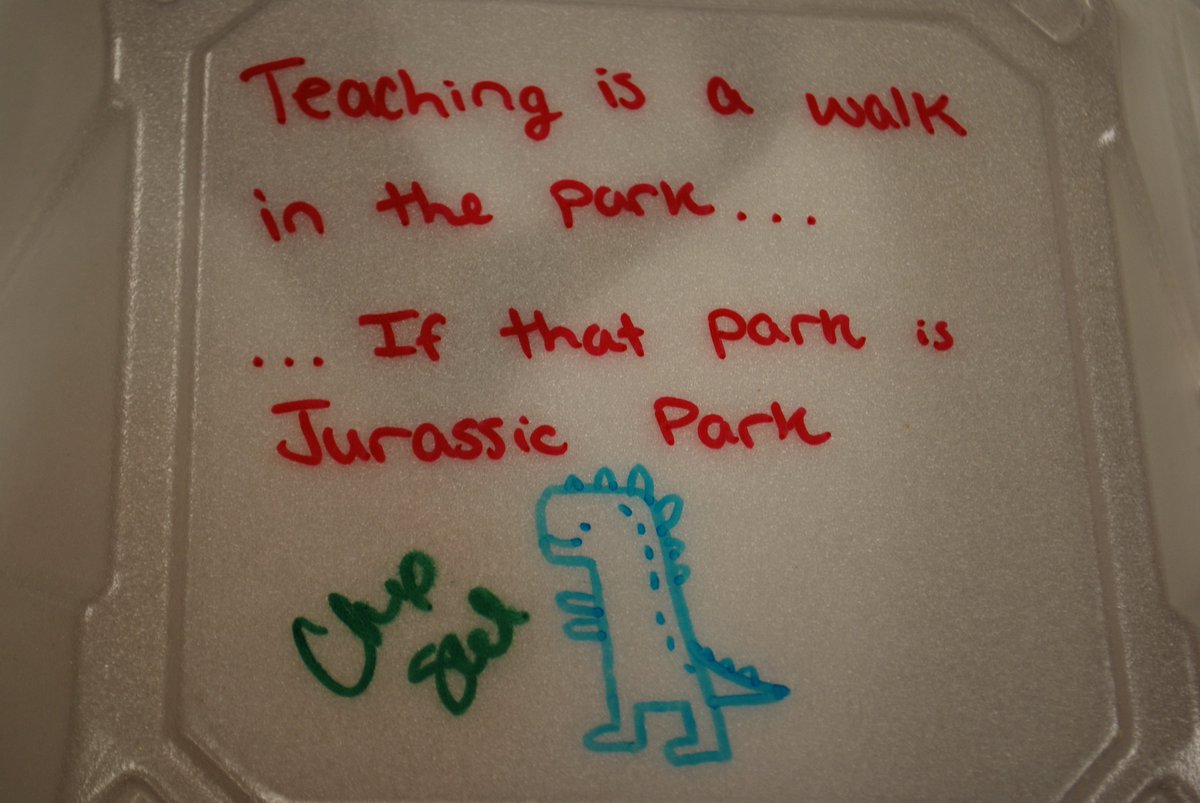 Teaching is a walk
in the park...
... If that park is
Jurassic Park